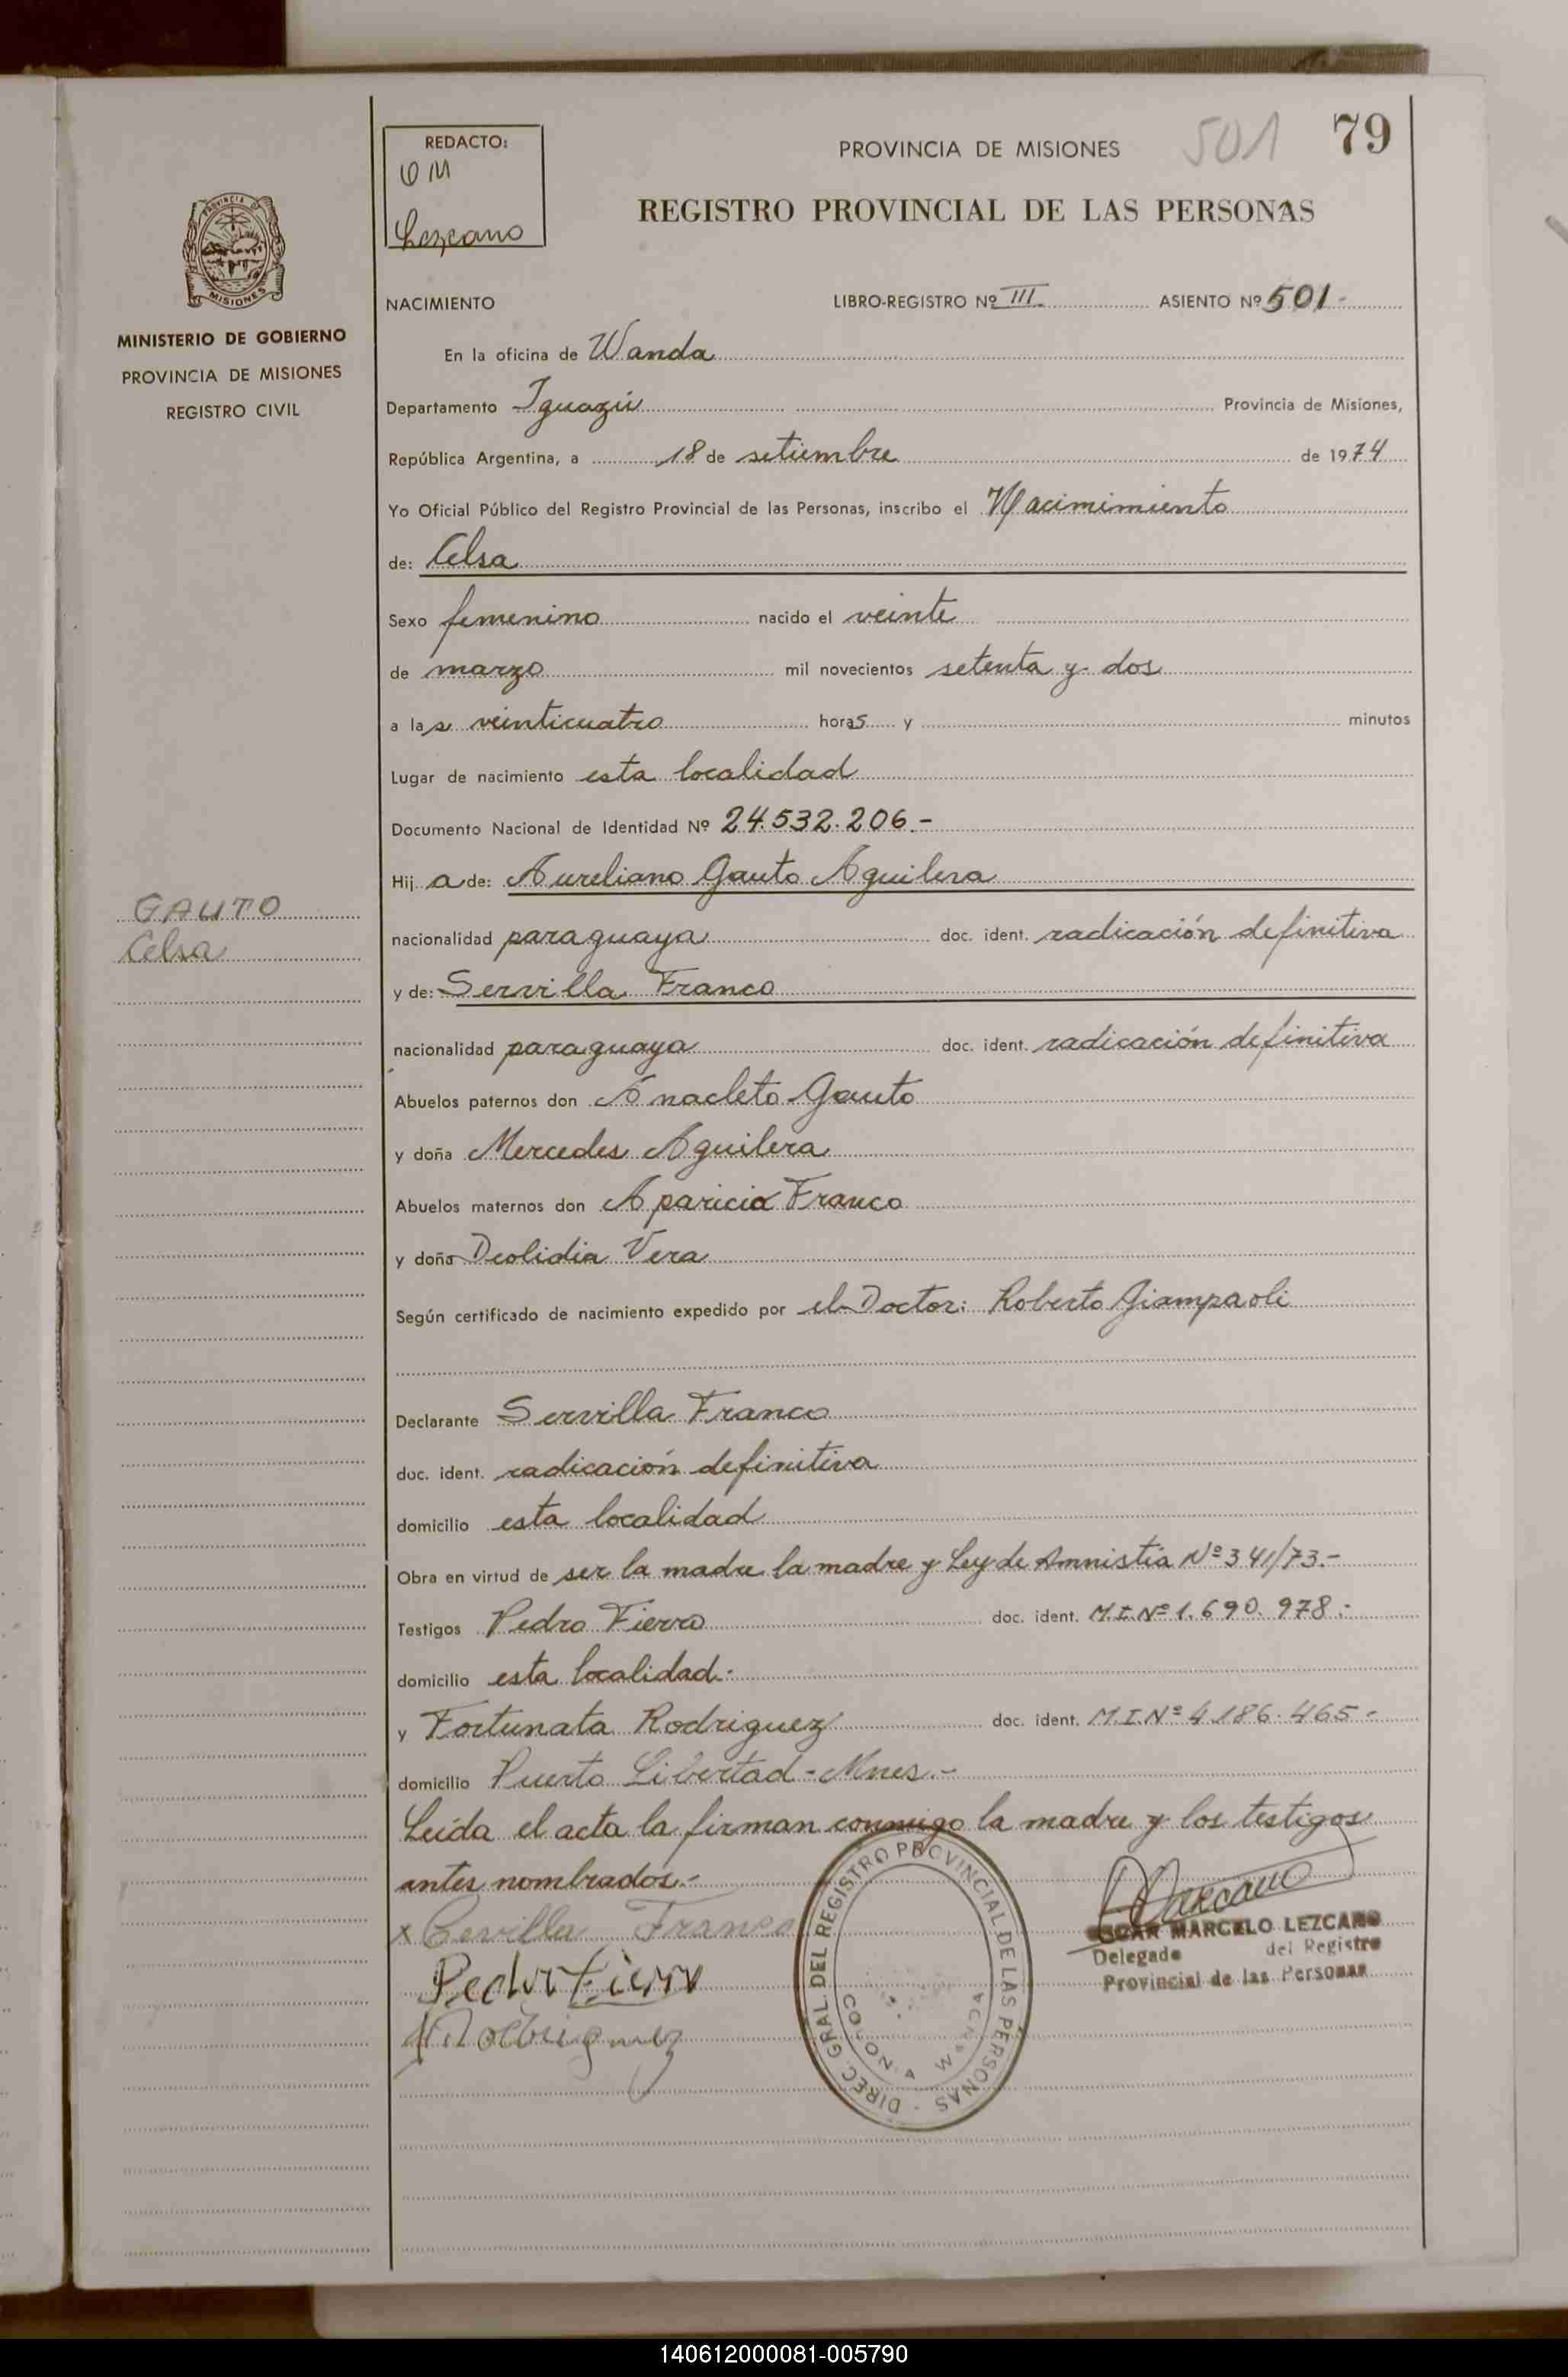 REDACTO:
OM
Lezcano
PROVINCIA DE MISIONES
501
79
REGISTRO PROVINCIAL DE LAS PERSONAS
PROVINCIA DE
MISIONES
MINISTERIO DE GOBIERNO
PROVINCIA DE MISIONES
REGISTRO CIVIL
NACIMIENTO LIBRO-REGISTRO Nº III ASIENTO Nº 501-
En la oficina de Wanda
Departamento Iguazú Provincia de Misiones,
República Argentina, a 18 de setiembre de 1974
Yo Oficial Público del Registro Provincial de las Personas, inscribo el Nacimimiento
de: Celsa
Sexo femenino nacido el veinte
de marzo mil novecientos setenta y dos
a las veinticuatro horas y minutos
Lugar de nacimiento esta localidad
Documento Nacional de Identidad Nº 24.532.206.-
Hija de: Aureliano Gauto Aguilera
GAUTO
Celsa
nacionalidad paraguaya doc. ident. radicación definitiva
y de: Servilla Franco
nacionalidad paraguaya doc. ident. radicación definitiva
Abuelos paternos don Anacleto Gauto
y doña Mercedes Aguilera
Abuelos maternos don Aparicio Franco
y doña Deolidia Vera
Según certificado de nacimiento expedido por el Doctor: Roberto Giampaoli
Declarante Servilla Franco
doc. ident. radicación definitiva
domicilio esta localidad
Obra en virtud de ser la madre la madre y Ley de Amnistía Nº 341/73.-
Testigos Pedro Fierro doc. ident. M.I.Nº 1.690.978.-
domicilio esta localidad.-
y Fortunata Rodriguez doc. ident. M.I.Nº 4.186.465-
domicilio Puerto Libertad-Mnes.-
Leída el acta la firman conmigo la madre y los testigos
antes nombrados.-
x Cevilla Franco
Pedro Fierro
F Rodriguez
DIREC. GRAL. DEL REGISTRO PROVINCIAL DE LAS PERSONAS -
COLONIA WANDA
Lezcano
OSCAR MARCELO LEZCANO
Delegado del Registro
Provincial de las Personas
140612000081-005790